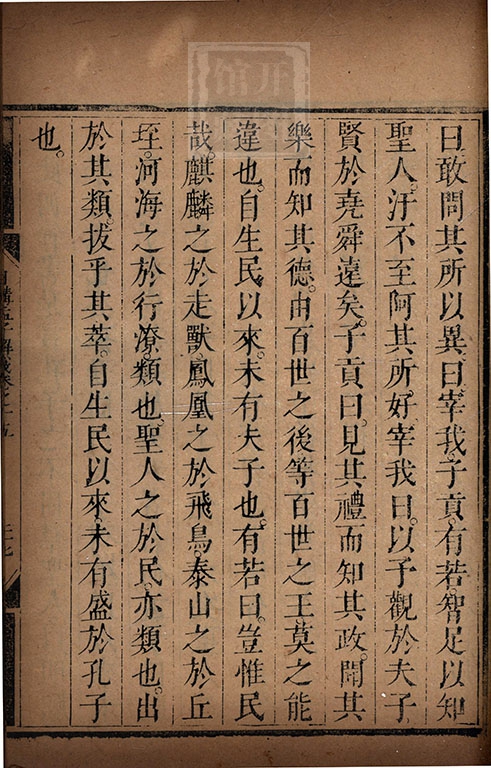 曰敢問其所以異曰宰我子貢有若智足以知
聖人。汙不至阿其所好宰我曰以予觀於夫子
賢於堯舜遠矣。子貢曰見其禮而知其政聞其
樂而知其德。由百世之後等百世之王莫之能
違也。自生民以來未有夫子也。有若曰豈惟民
哉。麒麟之於走獸鳳凰之於飛鳥泰山之於丘
垤。河海之於行潦類也。聖人之於民亦類也。出
於其類。拔乎其萃。自生民以來未有盛於孔子
也。